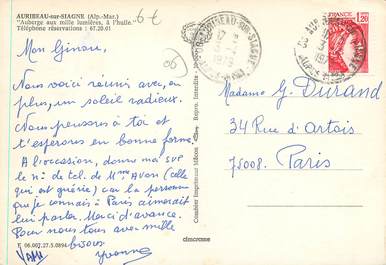 AURIBEAU-sur-SIAGNE (Alp.-Mar.)
"Auberge aux mille lumières, à l'huile."
Téléphone réservations : 67.20.01
6 €
06
Mon Ginou,
Nous voici réunis avec, en
plus, un soleil radieux.
Nous pensons à toi et
t'espérons en bonne forme.
A l'occasion, donne-moi sur
le n° de tel. de Mme Avon (celle
qui est guérie) car la personne
que je connais à Paris aimerait
lui parler. Merci d'avance.
Pour nous tous avec mille
bisous
Yvonne
06 AURIBEAU-SUR-SIAGNE
17 H
1979
FRANCE
1,20
Madame G. Durand
34 Rue d'Artois
75008. Paris
cimcrome
E 06.007.27.5.0894